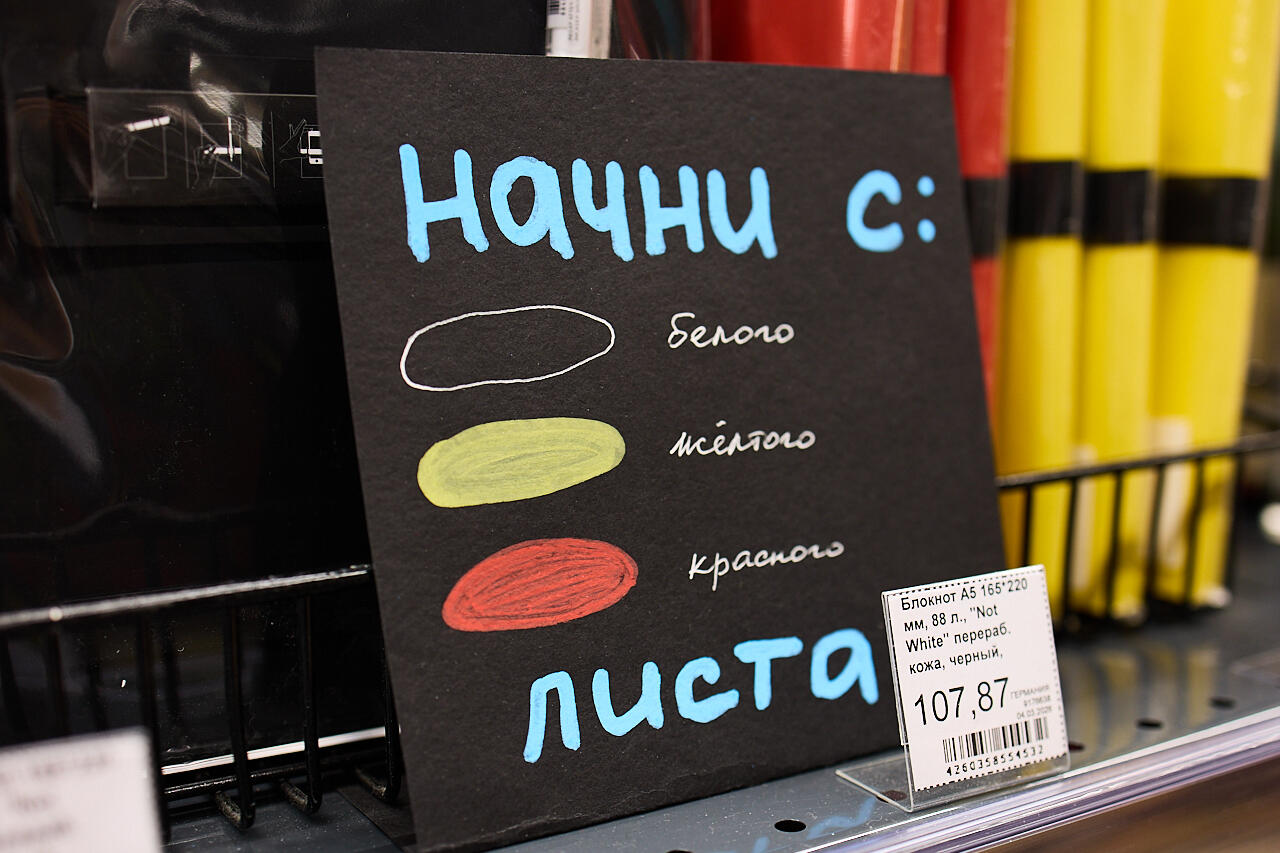 Начни с:
белого
жёлтого
красного
листа
Блокнот А5 165*220
мм, 88 л., "Not
White" перераб.
кожа, черный,
107,87
ГЕРМАНИЯ
9176638
04.03.2026
4260358554532